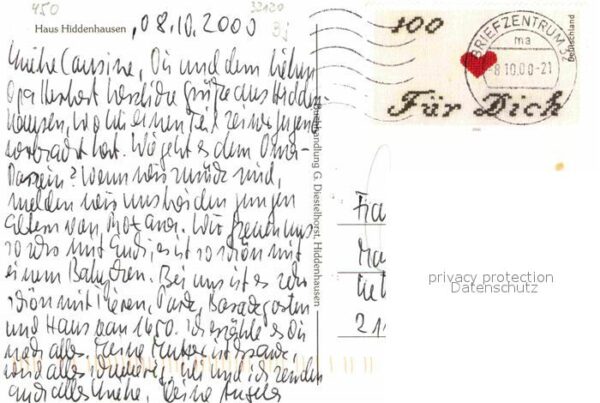 450
33120
Haus Hiddenhausen, 08.10.2000
Liebe Cousine, Dir und dem lieben
Opa Herbert herzliche Grüße aus Hidden-
hausen, wo ich einen Teil seiner Jugend
verbracht hat. Wie geht es dem Oma-
Dasein? Wenn wir zurück sind,
melden wir uns bei den jungen
Eltern von. Wir freuen uns
so sehr mit Euch, es ist so schön mit
einem Babychen. Bei uns ist es sehr
schön mit Tieren, Park, Barockgarten
und Haus von 1650. Ich erzähle es Dir
noch alles. Meine Mutter
wird alles. und ich senden
Euch alles Liebe, Deine Angela
Buchhandlung G. Diestelhorst, Hiddenhausen
100
Für Dich
Deutschland
BRIEFZENTRUM 32
ma
-8.10.00-21
Fra
Ma
21
privacy protection
Datenschutz